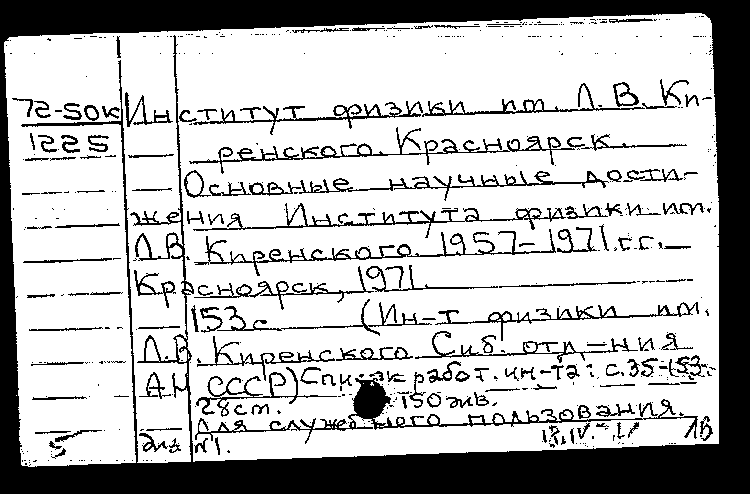 72-50к Институт физики им. Л. В. Ки-
1225 ренского. Красноярск.
Основные научные дости-
жения Института физики им.
Л.В. Киренского. 1957-1971.г.г.
Красноярск, 1971.
153с (Ин-т физики им.
Л.В. Киренского Сиб. отд-ния
АН СССР) Список работ. ин-та: с.35-153.
28см. 150экз.
Для служебного пользования.
5 экз №1. 1В